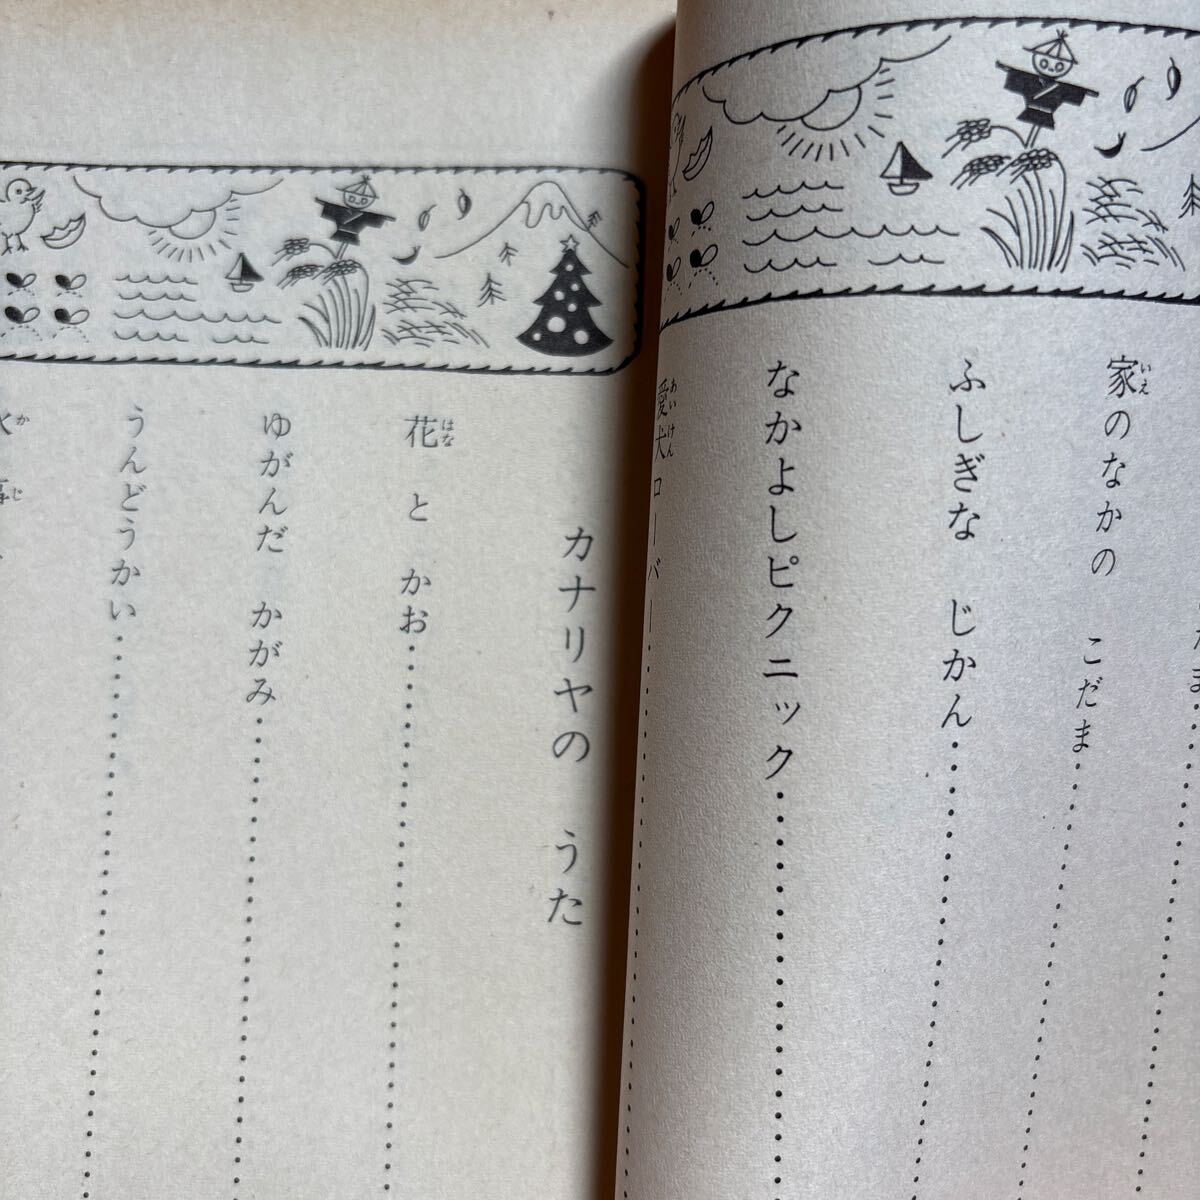 家のなかの こだま
ふしぎな じかん
なかよしピクニック
愛犬ローバー
カナリヤの うた
花 と かお
ゆがんだ かがみ
うんどうかい